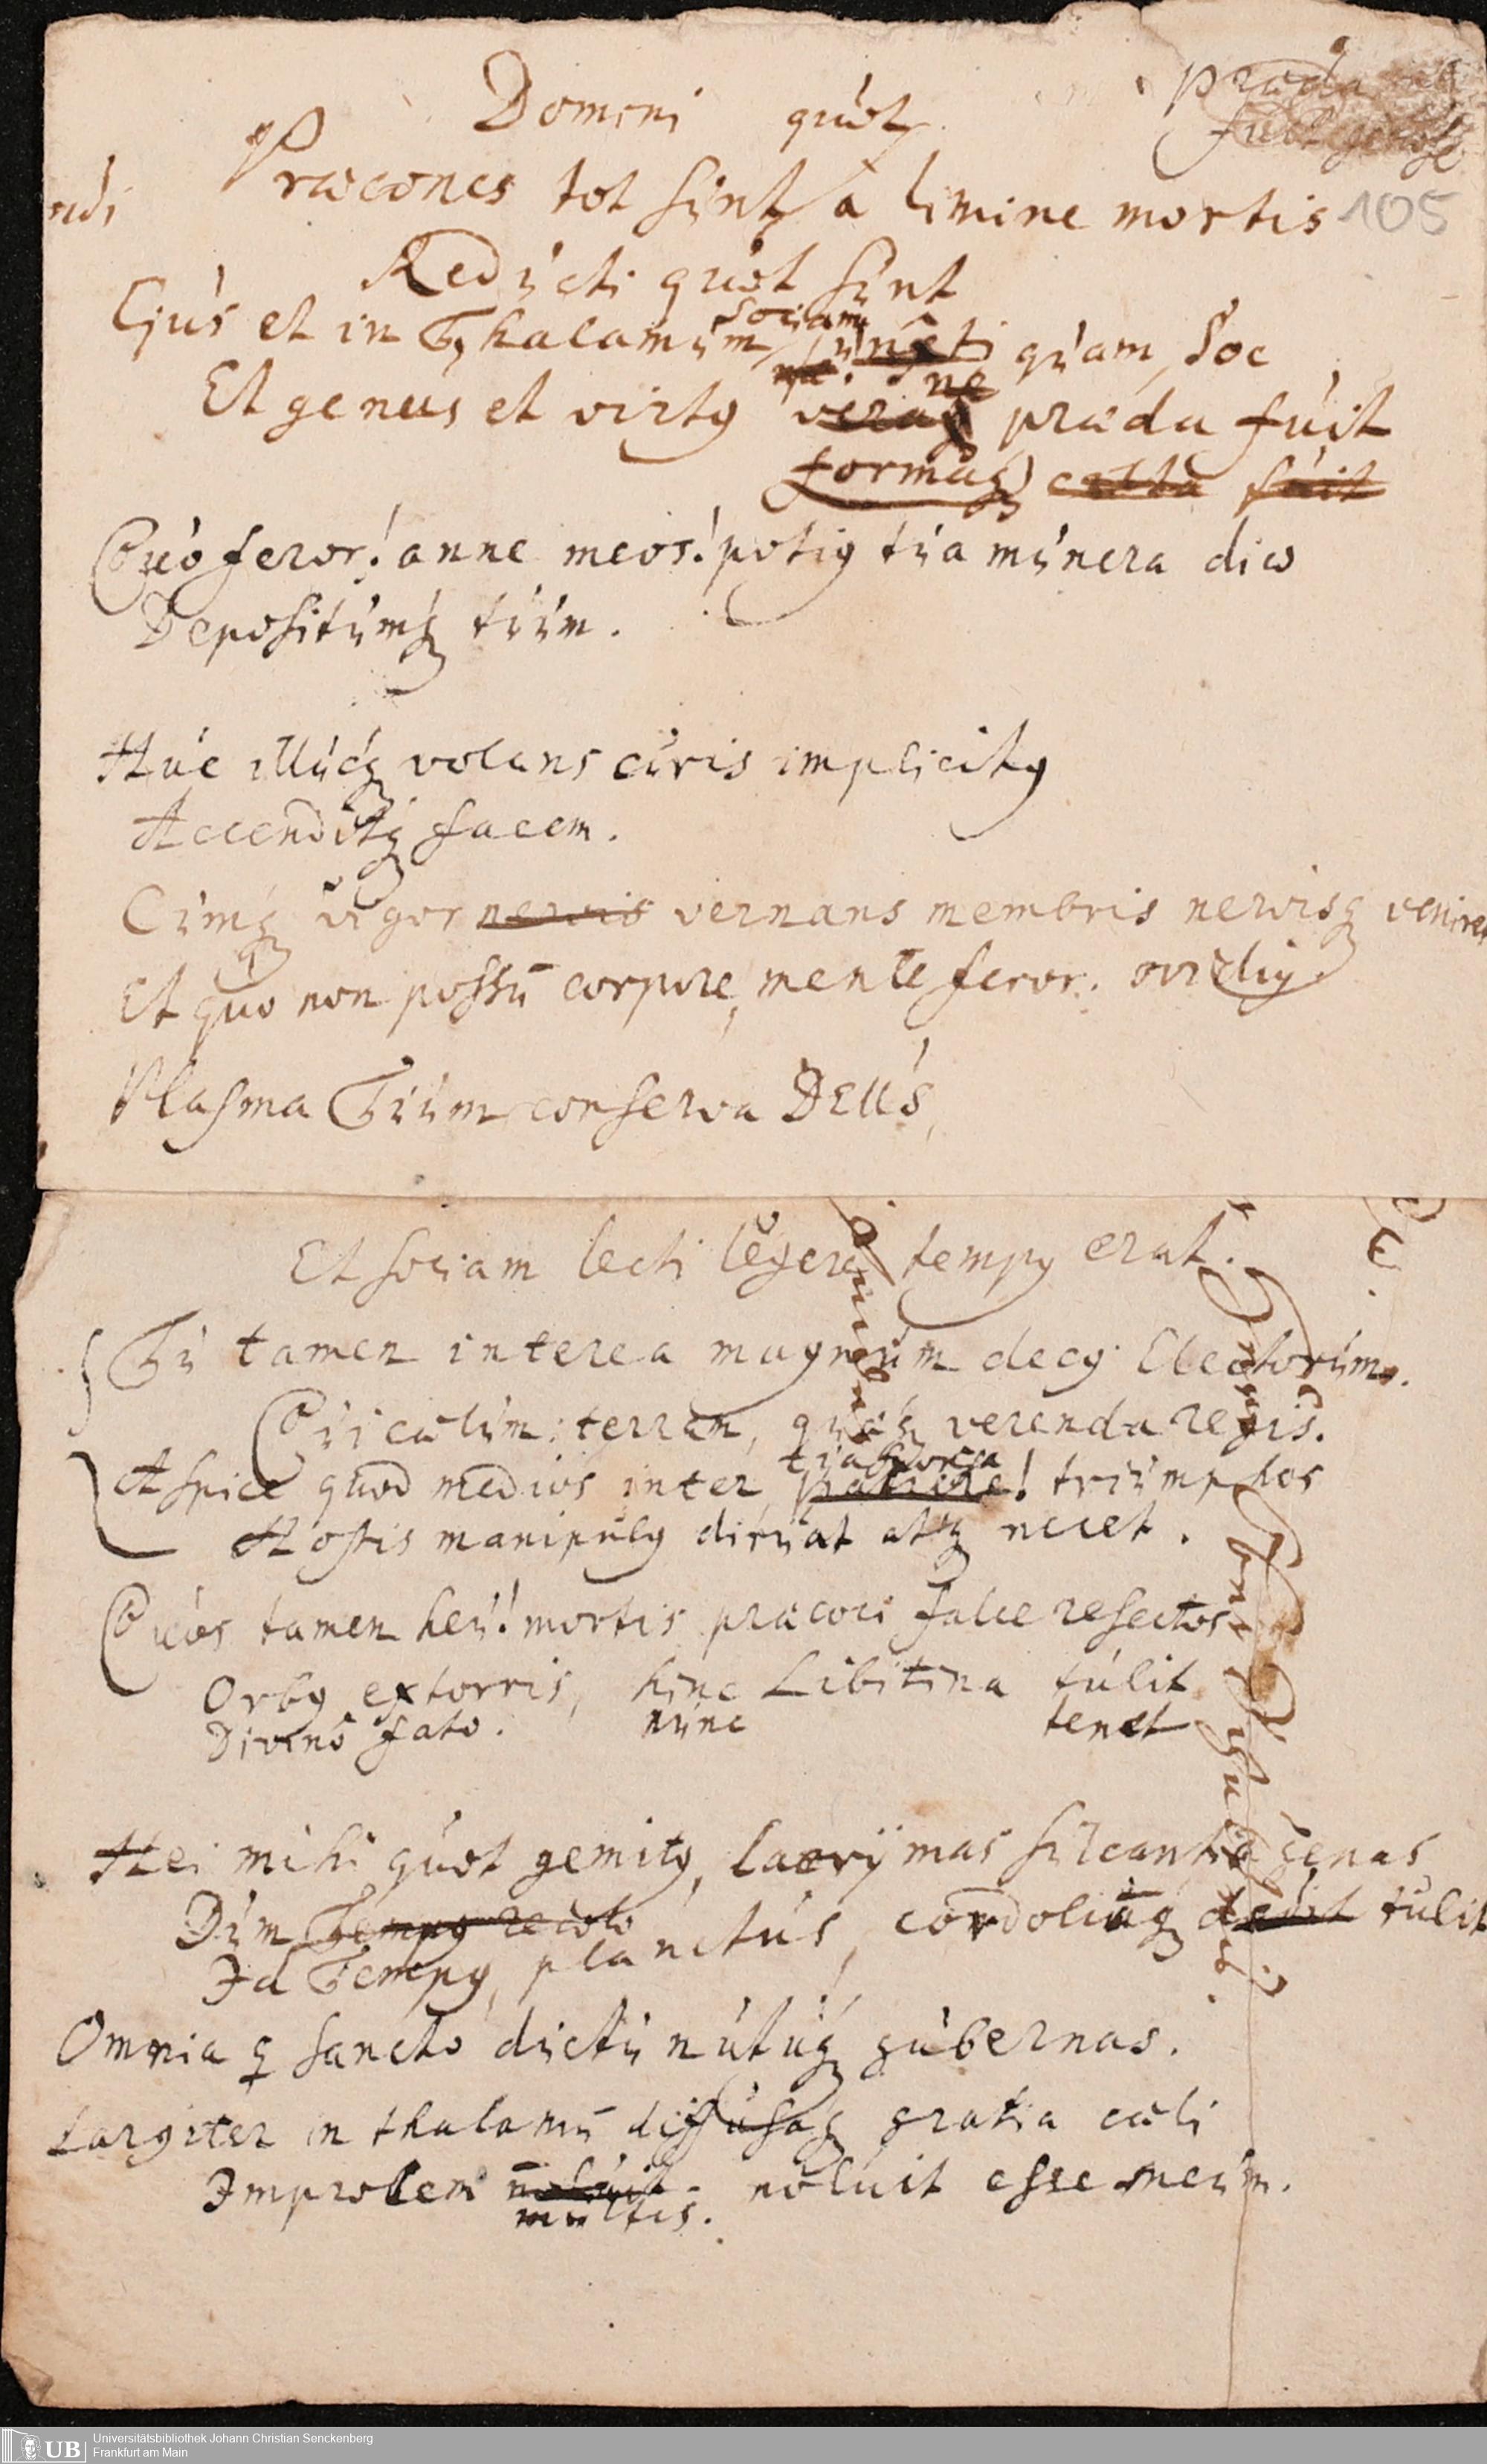 Domini quot
præda
fuit
ndi
Præcones tot sint a limine mortis 105
Reducti quot sint
sociam
Ejus et in Thalamum juncti quam, Soc
ne
Et genus et virtꝰ veraq́ præda fuit
formaq́ certa fuit
Quo feror! anne meos! potiꝰ tua munera dico
Depositumq́ tuum.
Huc illucq́ volans curis implicitꝰ
Accenditq́ facem.
Cumq́ vigor nervis vernans membris nervisq́ veniret
Et quo non possū corpore, mente feror. ovidiꝰ
Plasma Tuum conserva DEUS,
Et sociam lecti legere tempꝰ erat.
E.
Tu tamen interea magnum decꝰ Electorum.
Qui cœlum: terram, quæq́ verenda regis.
tua
Aspice quod medios inter, patriæ! triumphos
Hostis manipulꝰ diruat atq́ necet.
Quos tamen heu! mortis præcoci falce resectos
Orbꝰ extorris, hinc Libitina tulit
Divino fato. nunc tenet
Hei mihi quot gemitꝰ, lacrymas sulcantia genas
Dum Tempꝰ recolo planctus, cordoliaq́ dedit tulit
Id Tempꝰ,
Omnia q sancto ductu nutuq́ gubernas.
Largiter in thalamū diffusaq́ gratia cœli
Improlem noluit - noluit esse meum.
multis.
Universitätsbibliothek Johann Christian Senckenberg
Frankfurt am Main
UB